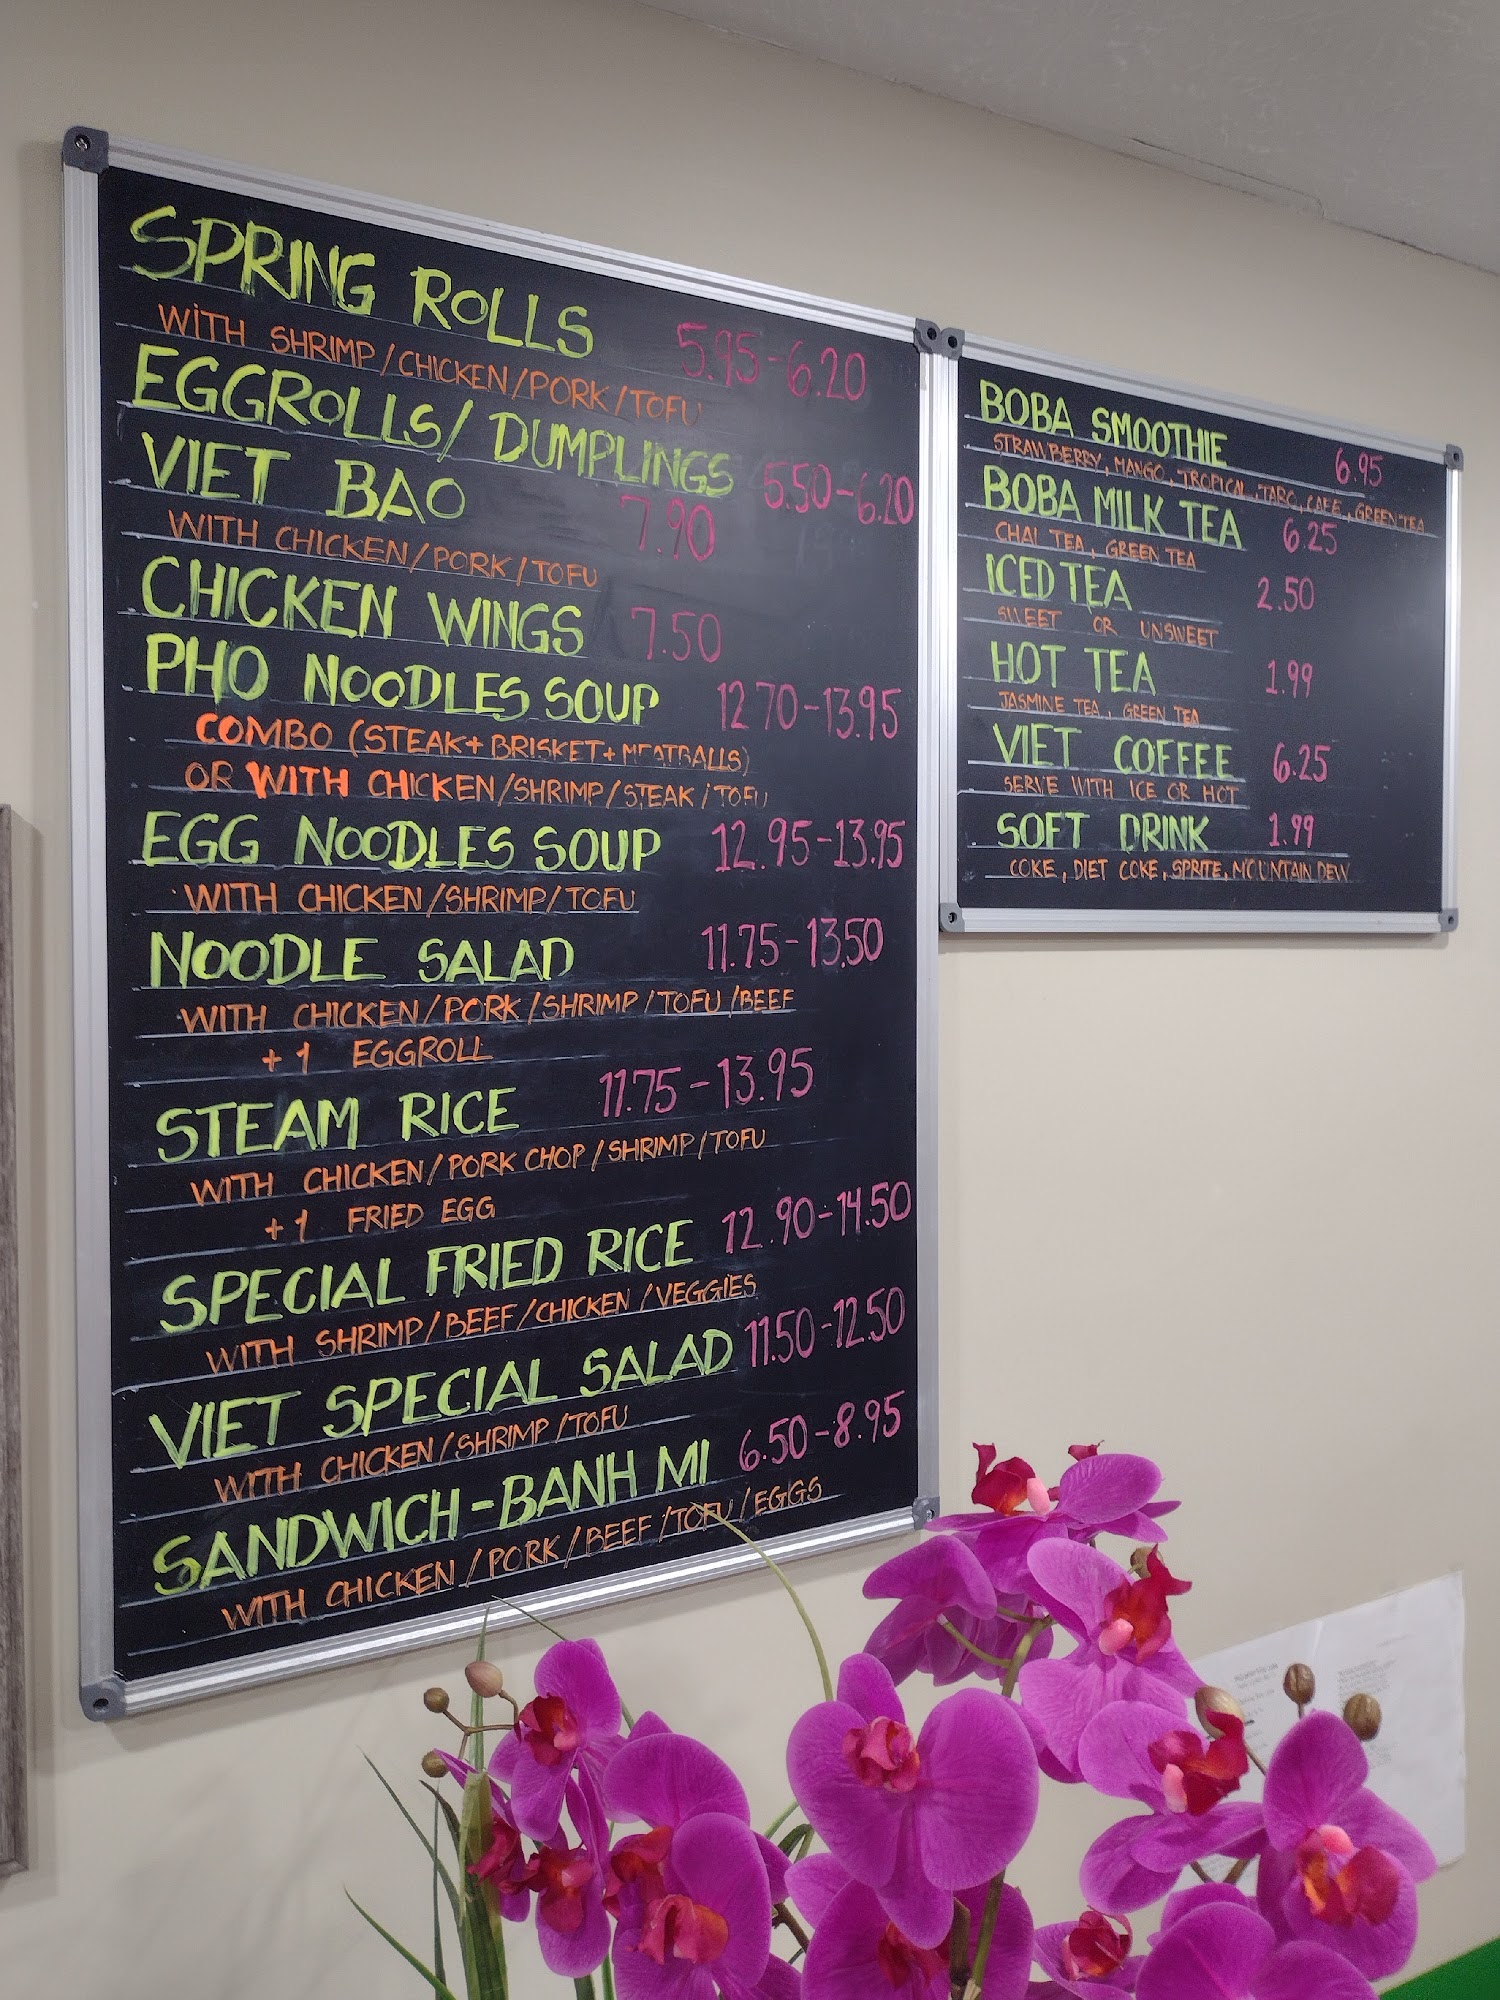 SPRING ROLLS 5.95-6.20
WITH SHRIMP/CHICKEN/PORK/TOFU
EGGROLLS/DUMPLINGS 5.50-6.20
VIET BAO 7.90
WITH CHICKEN/PORK/TOFU
CHICKEN WINGS 7.50
PHO NOODLES SOUP 12.70-13.95
COMBO (STEAK+BRISKET+MEATBALLS)
OR WITH CHICKEN/SHRIMP/STEAK/TOFU
EGG NOODLES SOUP 12.95-13.95
WITH CHICKEN/SHRIMP/TOFU
NOODLE SALAD 11.75-13.50
WITH CHICKEN/PORK/SHRIMP/TOFU/BEEF
+1 EGGROLL
STEAM RICE 11.75-13.95
WITH CHICKEN/PORK CHOP/SHRIMP/TOFU
+1 FRIED EGG
SPECIAL FRIED RICE 12.90-14.50
WITH SHRIMP/BEEF/CHICKEN/VEGGIES
VIET SPECIAL SALAD 11.50-12.50
WITH CHICKEN/SHRIMP/TOFU
SANDWICH-BANH MI 6.50-8.95
WITH CHICKEN/PORK/BEEF/TOFU/EGGS
BOBA SMOOTHIE 6.95
STRAWBERRY, MANGO, TROPICAL, TARO, CAFE, GREEN TEA
BOBA MILK TEA 6.25
CHAI TEA, GREEN TEA
ICED TEA 2.50
SWEET OR UNSWEET
HOT TEA 1.99
JASMINE TEA, GREEN TEA
VIET COFFEE 6.25
SERVE WITH ICE OR HOT
SOFT DRINK 1.99
COKE, DIET COKE, SPRITE, MOUNTAIN DEW